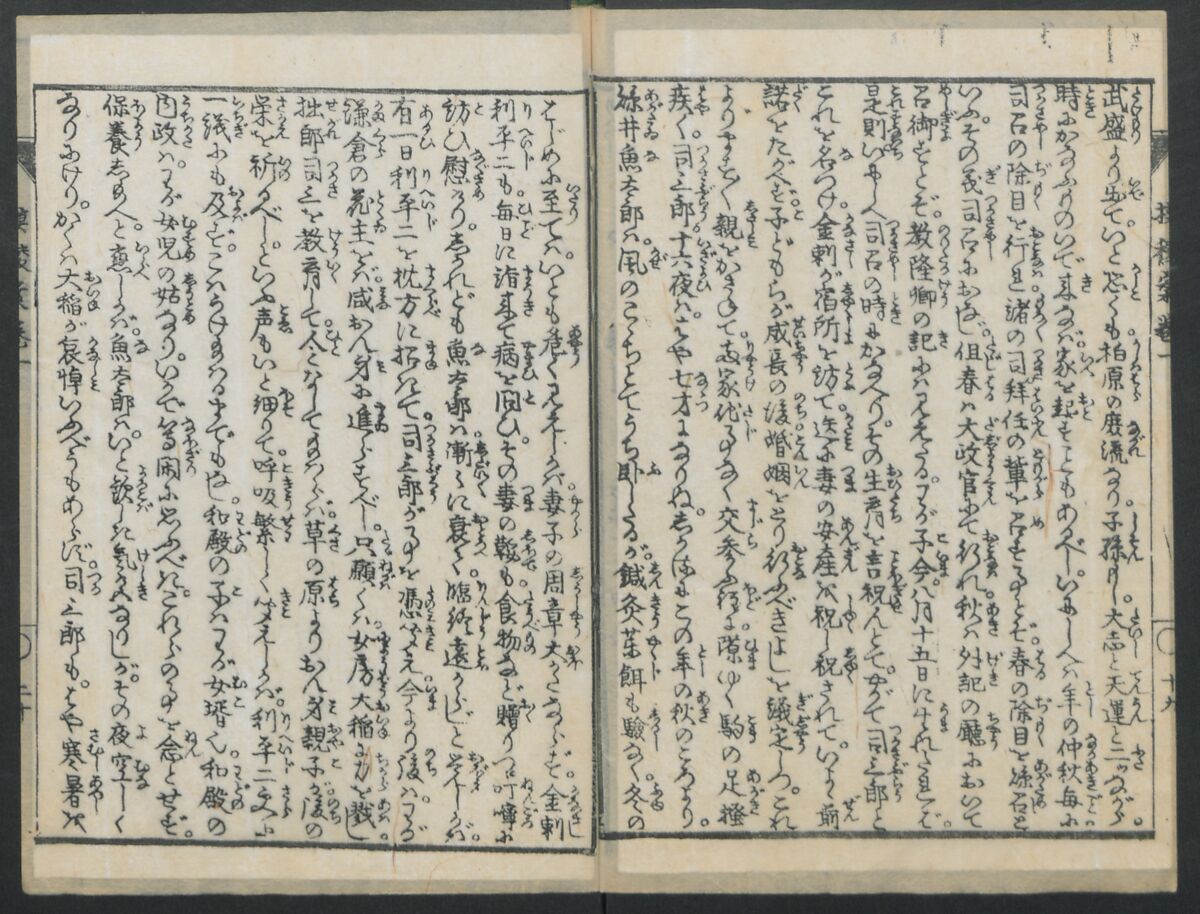 武盛より出ていと忝くも柏原の庶流なり。子孫もし大志と天運と二ッながら。
時にかなふものいで来なば。家を起すこともあるべし。いにしへは年の仲秋毎に
司召の除目を行ひ。諸の司拝任の輩を召すことぞ。春の除目を縣召と
いふ。その義司召におなじ。但春は大政官にて行れ。秋は外記の廳において
召御すとぞ。教隆卿の記に見えたる。わが子今八月十五日に生れたること
是則いにしへ司召の時にかなへり。その生育を言祝んとて。やがて司三郎と
これを名つけ。金刺が宿所を訪て。迭に妻の安産を祝し祝されていよゝ前
諾をたがへず。子どもらが成長の後。婚姻をとり行ふべきよしを議定しつ。これ
よります〳〵親をかさねて。両家代る〴〵交参る程に。隙ゆく駒の足掻
疾く。司三郎十六夜は。はや七才になりぬ。しかるにこの年の秋のころより。
縣井魚太郎は。風のこゝちとてうち臥したるが。鍼灸茶餌も驗なく。冬の
はじめに至ては。いとも危く見えしかば。妻子の周章大かたならず。金刺
利平二も毎日に詣来て病を問ひ。その妻の鞍も食物など贈りつ。叮嚀に
訪ひ慰めり。しかれども魚太郎は。漸々に衰て。臨終遠からじと覚しかば。
有一日利平二を枕方に招きて。司三郎がことを憑聞え。今より後は。わが
鎌倉の花主をば。咸おん身に進らすべし。只願くは女房大稲に力を戮し
拙郎司三を教育して。人となして給はらば。草の原よりおん身親子が後の
栄を祈るべしといふ声もいと細りて。呼吸繁しく聞えしかば。利平二その
一議にも及ばず。こはうけ給はるまでもなし。和殿の子はわが女壻也。和殿の
内政はわが女児の姑なり。いかで等閑に思ふべき。これらのことを念とせず。
保養し給へと慰しかば。魚太郎はいと歓しき気色なりしが。その夜空しく
なりにけり。かくは大稲が哀悼いふべうもあらず。司三郎も。はや寒暑を